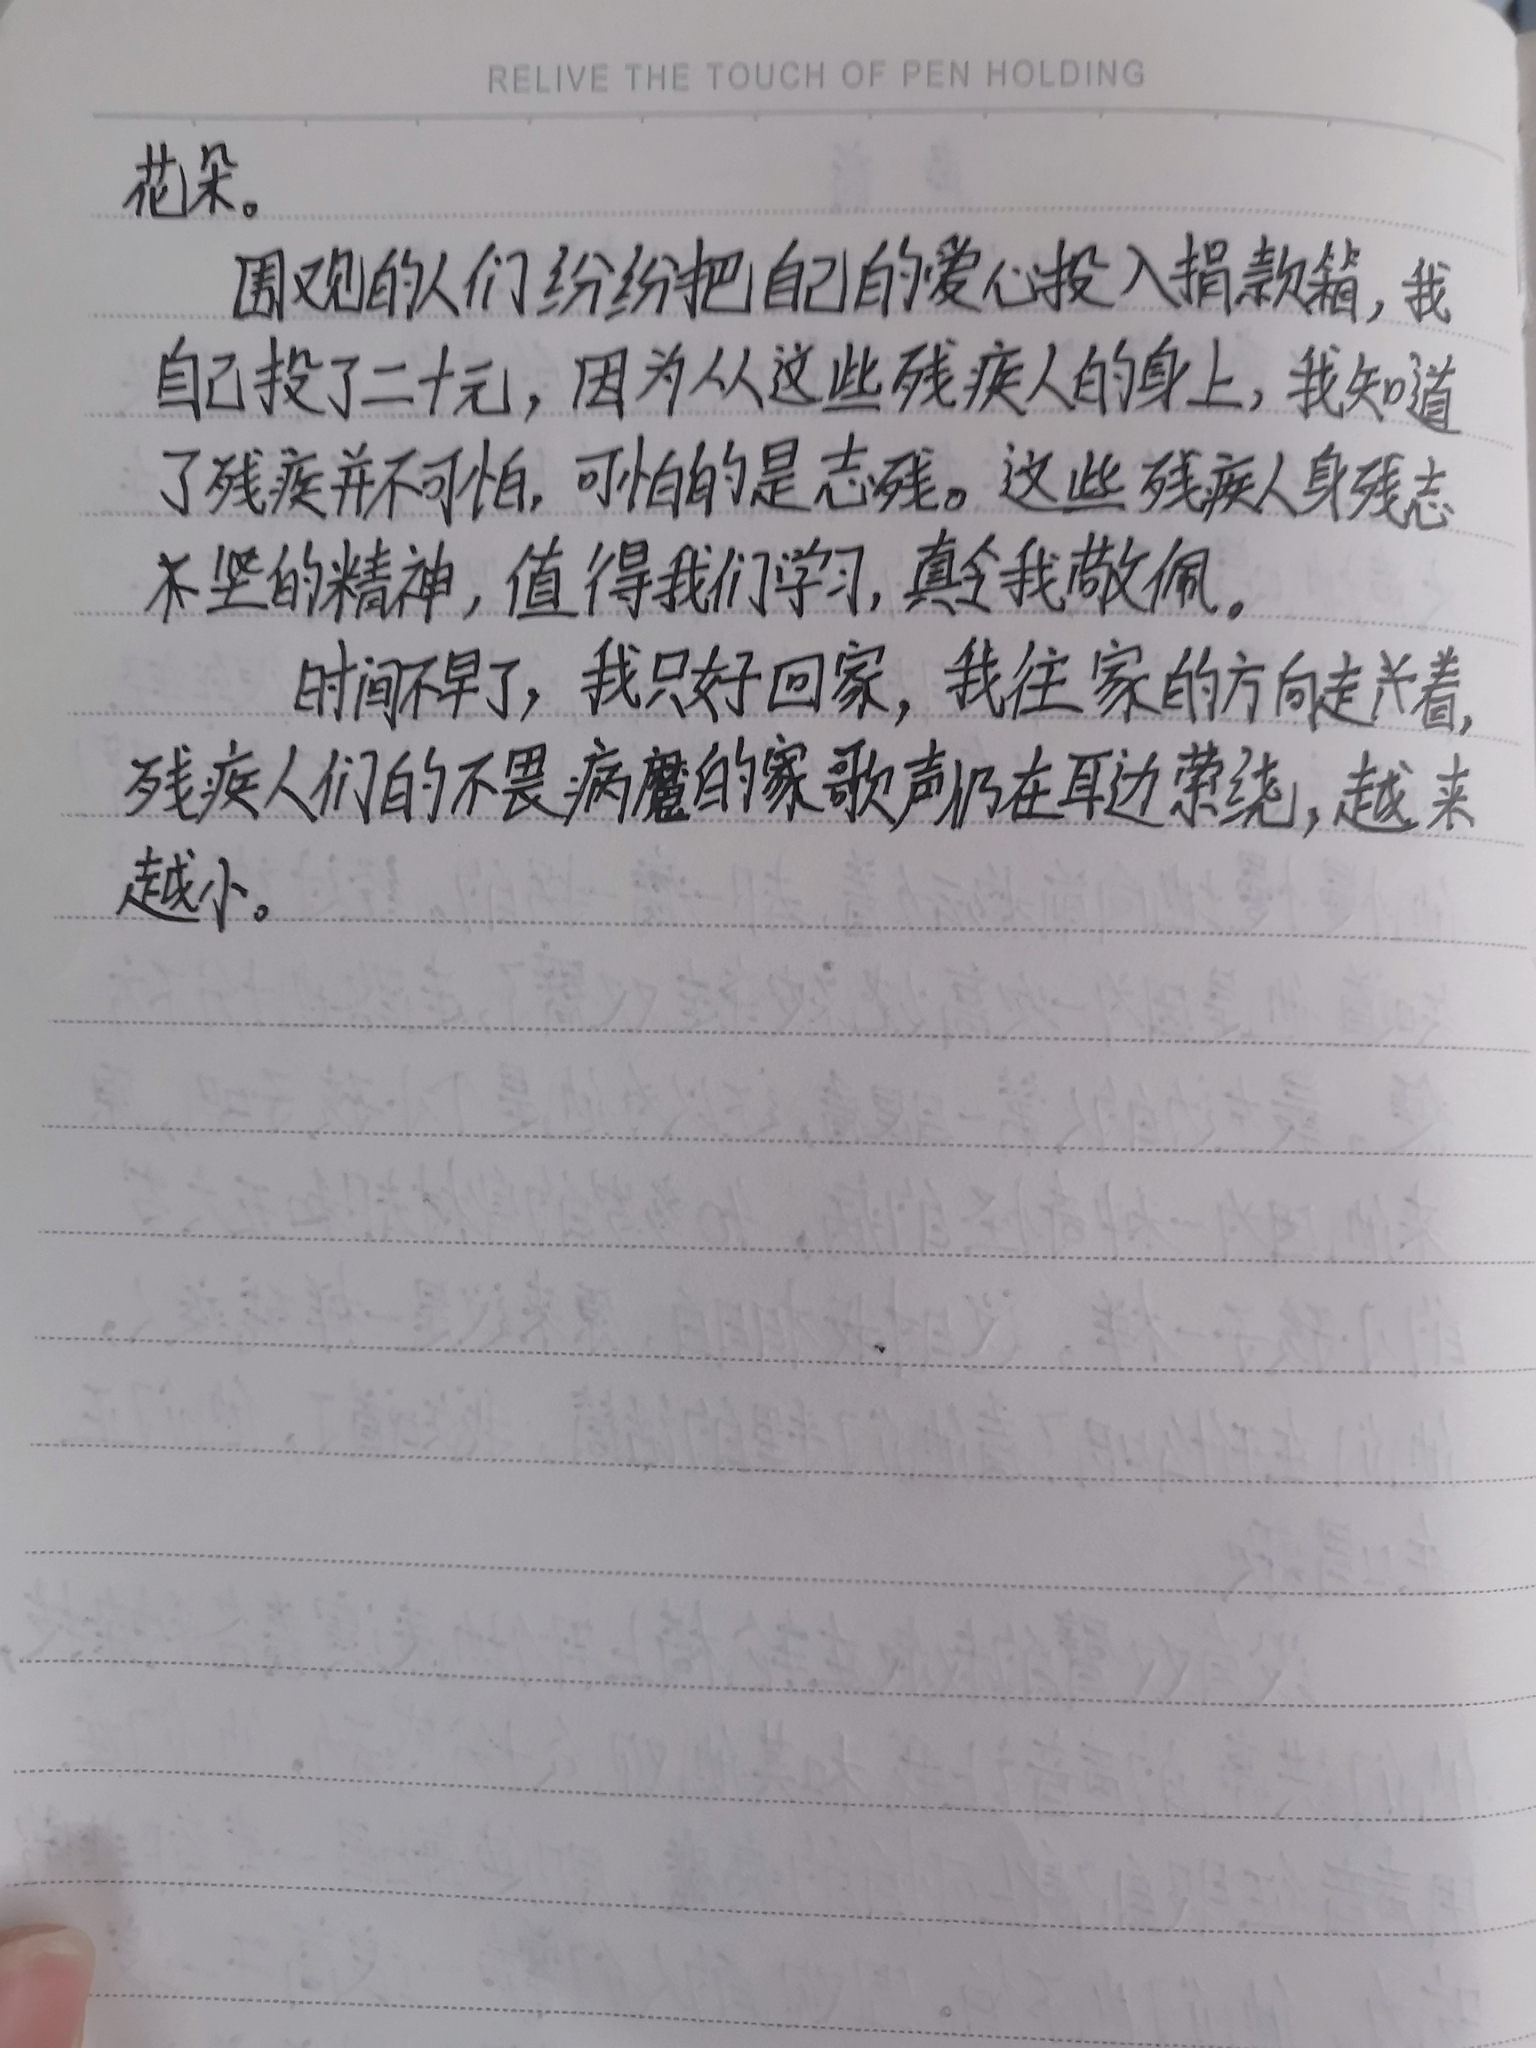 RELIVE THE TOUCH OF PEN HOLDING
花朵。
围观的人们纷纷把自己的爱心投入捐款箱,我
自己投了二十元,因为从这些残疾人的身上,我知道
了残疾并不可怕,可怕的是志残。这些残疾人身残志
不坚的精神,值得我们学习,真令我敬佩。
时间不早了,我只好回家,我往家的方向走着,
残疾人们的不畏病魔的歌声仍在耳边萦绕,越来
越小。